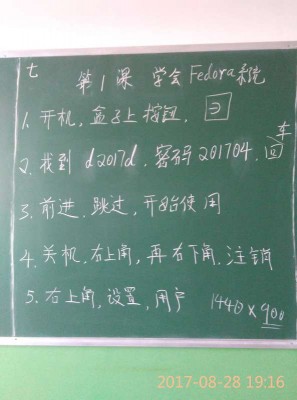 七
第1课 学会Fedora系统
1、开机,盒子上按钮,
2、找到 d2017d,密码201704,回车
3、前进,跳过,开始使用
4、关机,右上角,再右下角,注销
5、右上角,设置,用户 1440×900
2017-08-28 19:16